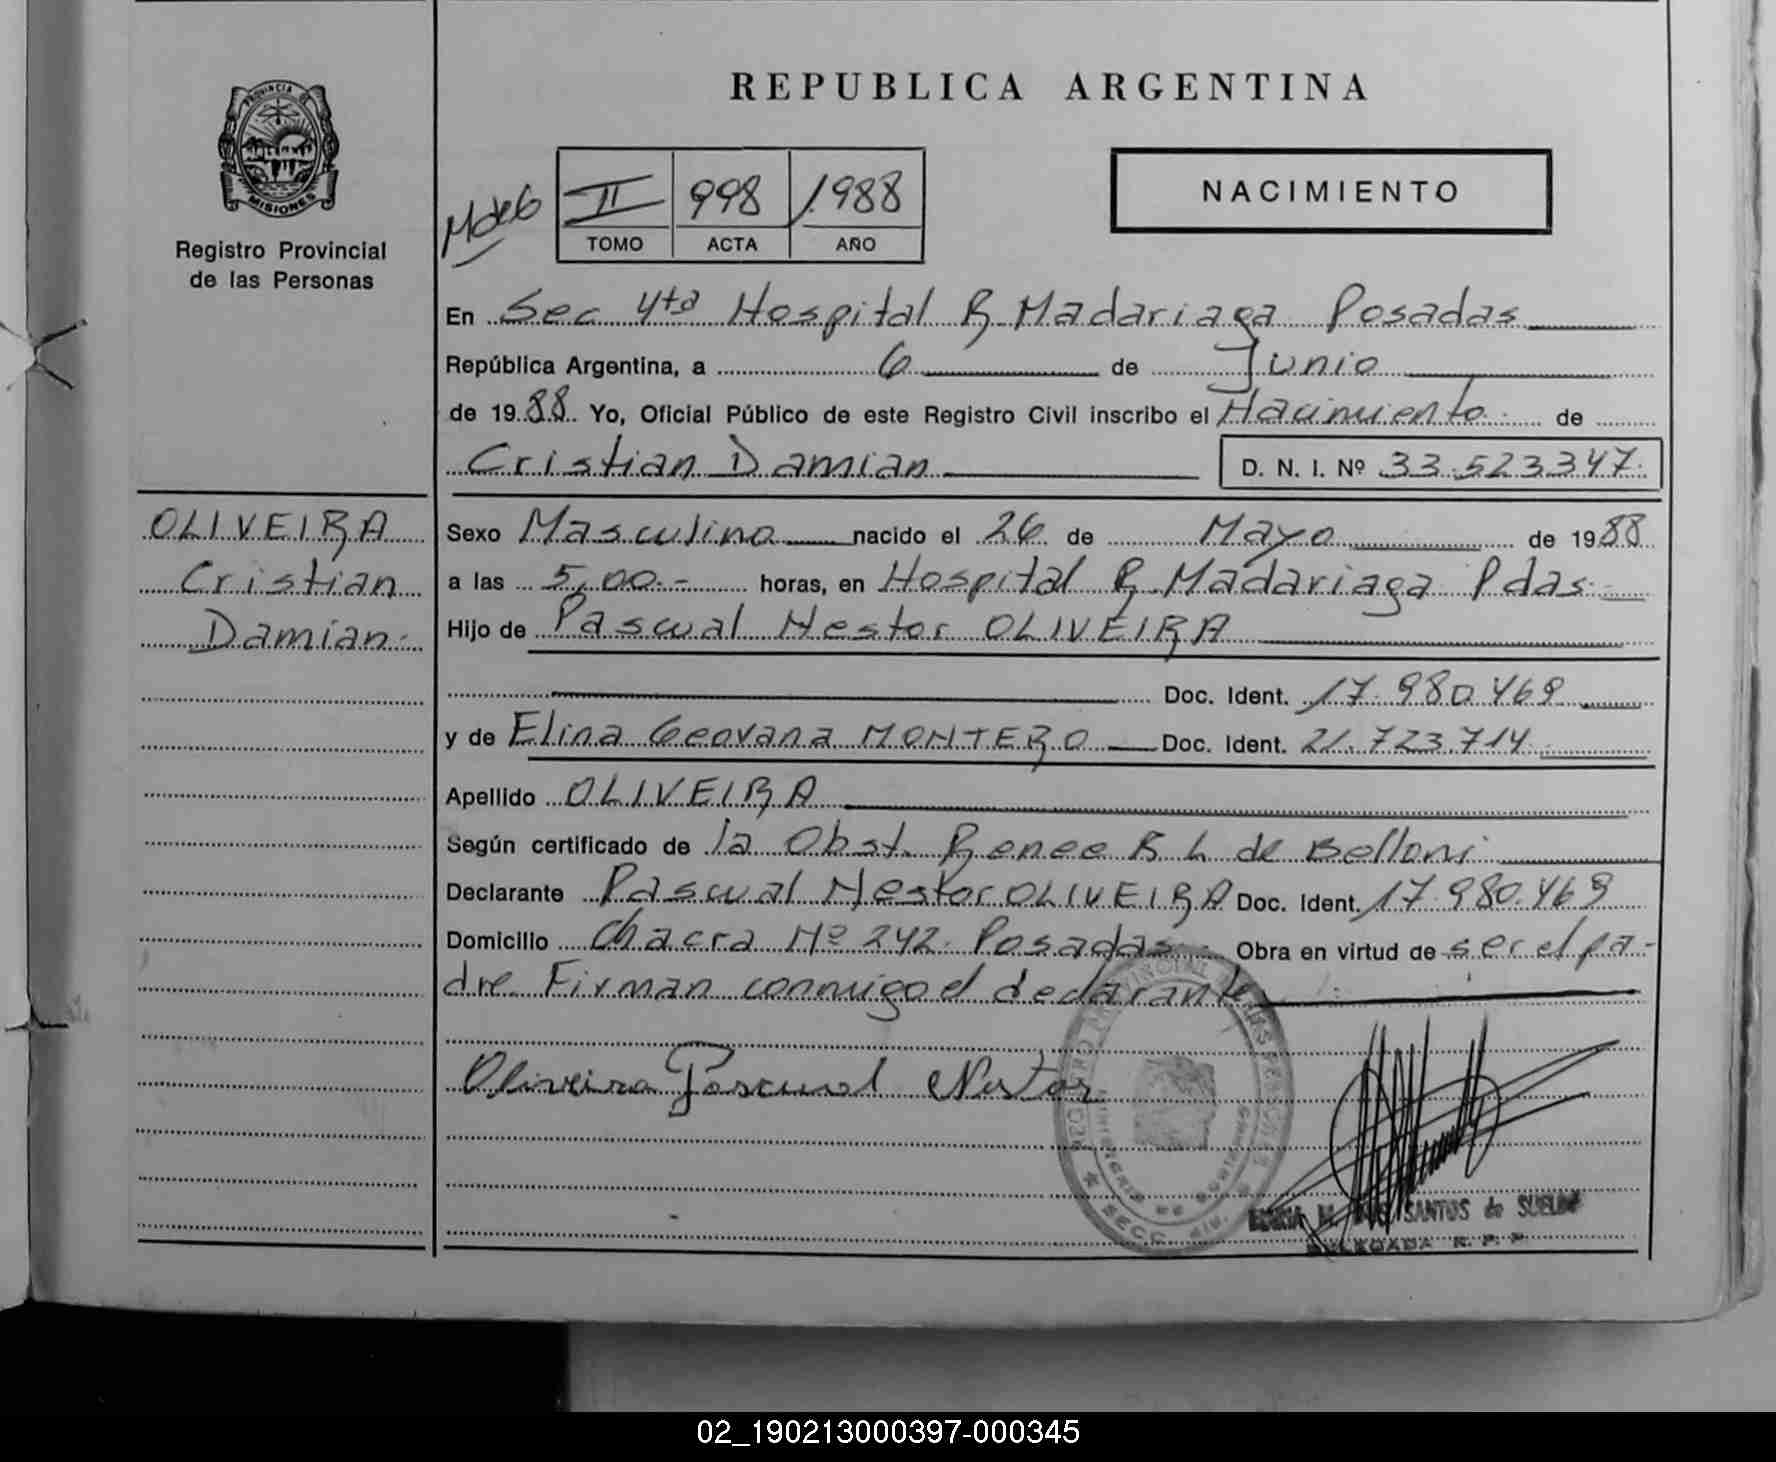 REPUBLICA ARGENTINA
PROVINCIA DE
MISIONES
Registro Provincial
de las Personas
II 998 1988
TOMO ACTA AÑO
NACIMIENTO
En Sec 4ta Hospital R Madariaga Posadas
República Argentina, a 6 de Junio
de 1988 Yo, Oficial Público de este Registro Civil inscribo el Nacimiento de
Cristian Damian D. N. I. Nº 33.523347
OLIVEIRA
Cristian
Damian
Sexo Masculino nacido el 26 de Mayo de 1988
a las 5,00.- horas, en Hospital R Madariaga Pdas
Hijo de Pascual Nestor OLIVEIRA
Doc. Ident. 17.980.469
y de Elina Geovana MONTERO Doc. Ident. 21.723.714
Apellido OLIVEIRA
Según certificado de la Obst. Renee R L de Belloni
Declarante Pascual Nestor OLIVEIRA Doc. Ident. 17.980.469
Domicilio Chacra Nº 242. Posadas Obra en virtud de ser el pa-
dre Firman conmigo el declarante
Oliveira Pascual Nestor
SANTOS de
DELEGADA R. P. P.
02_190213000397-000345